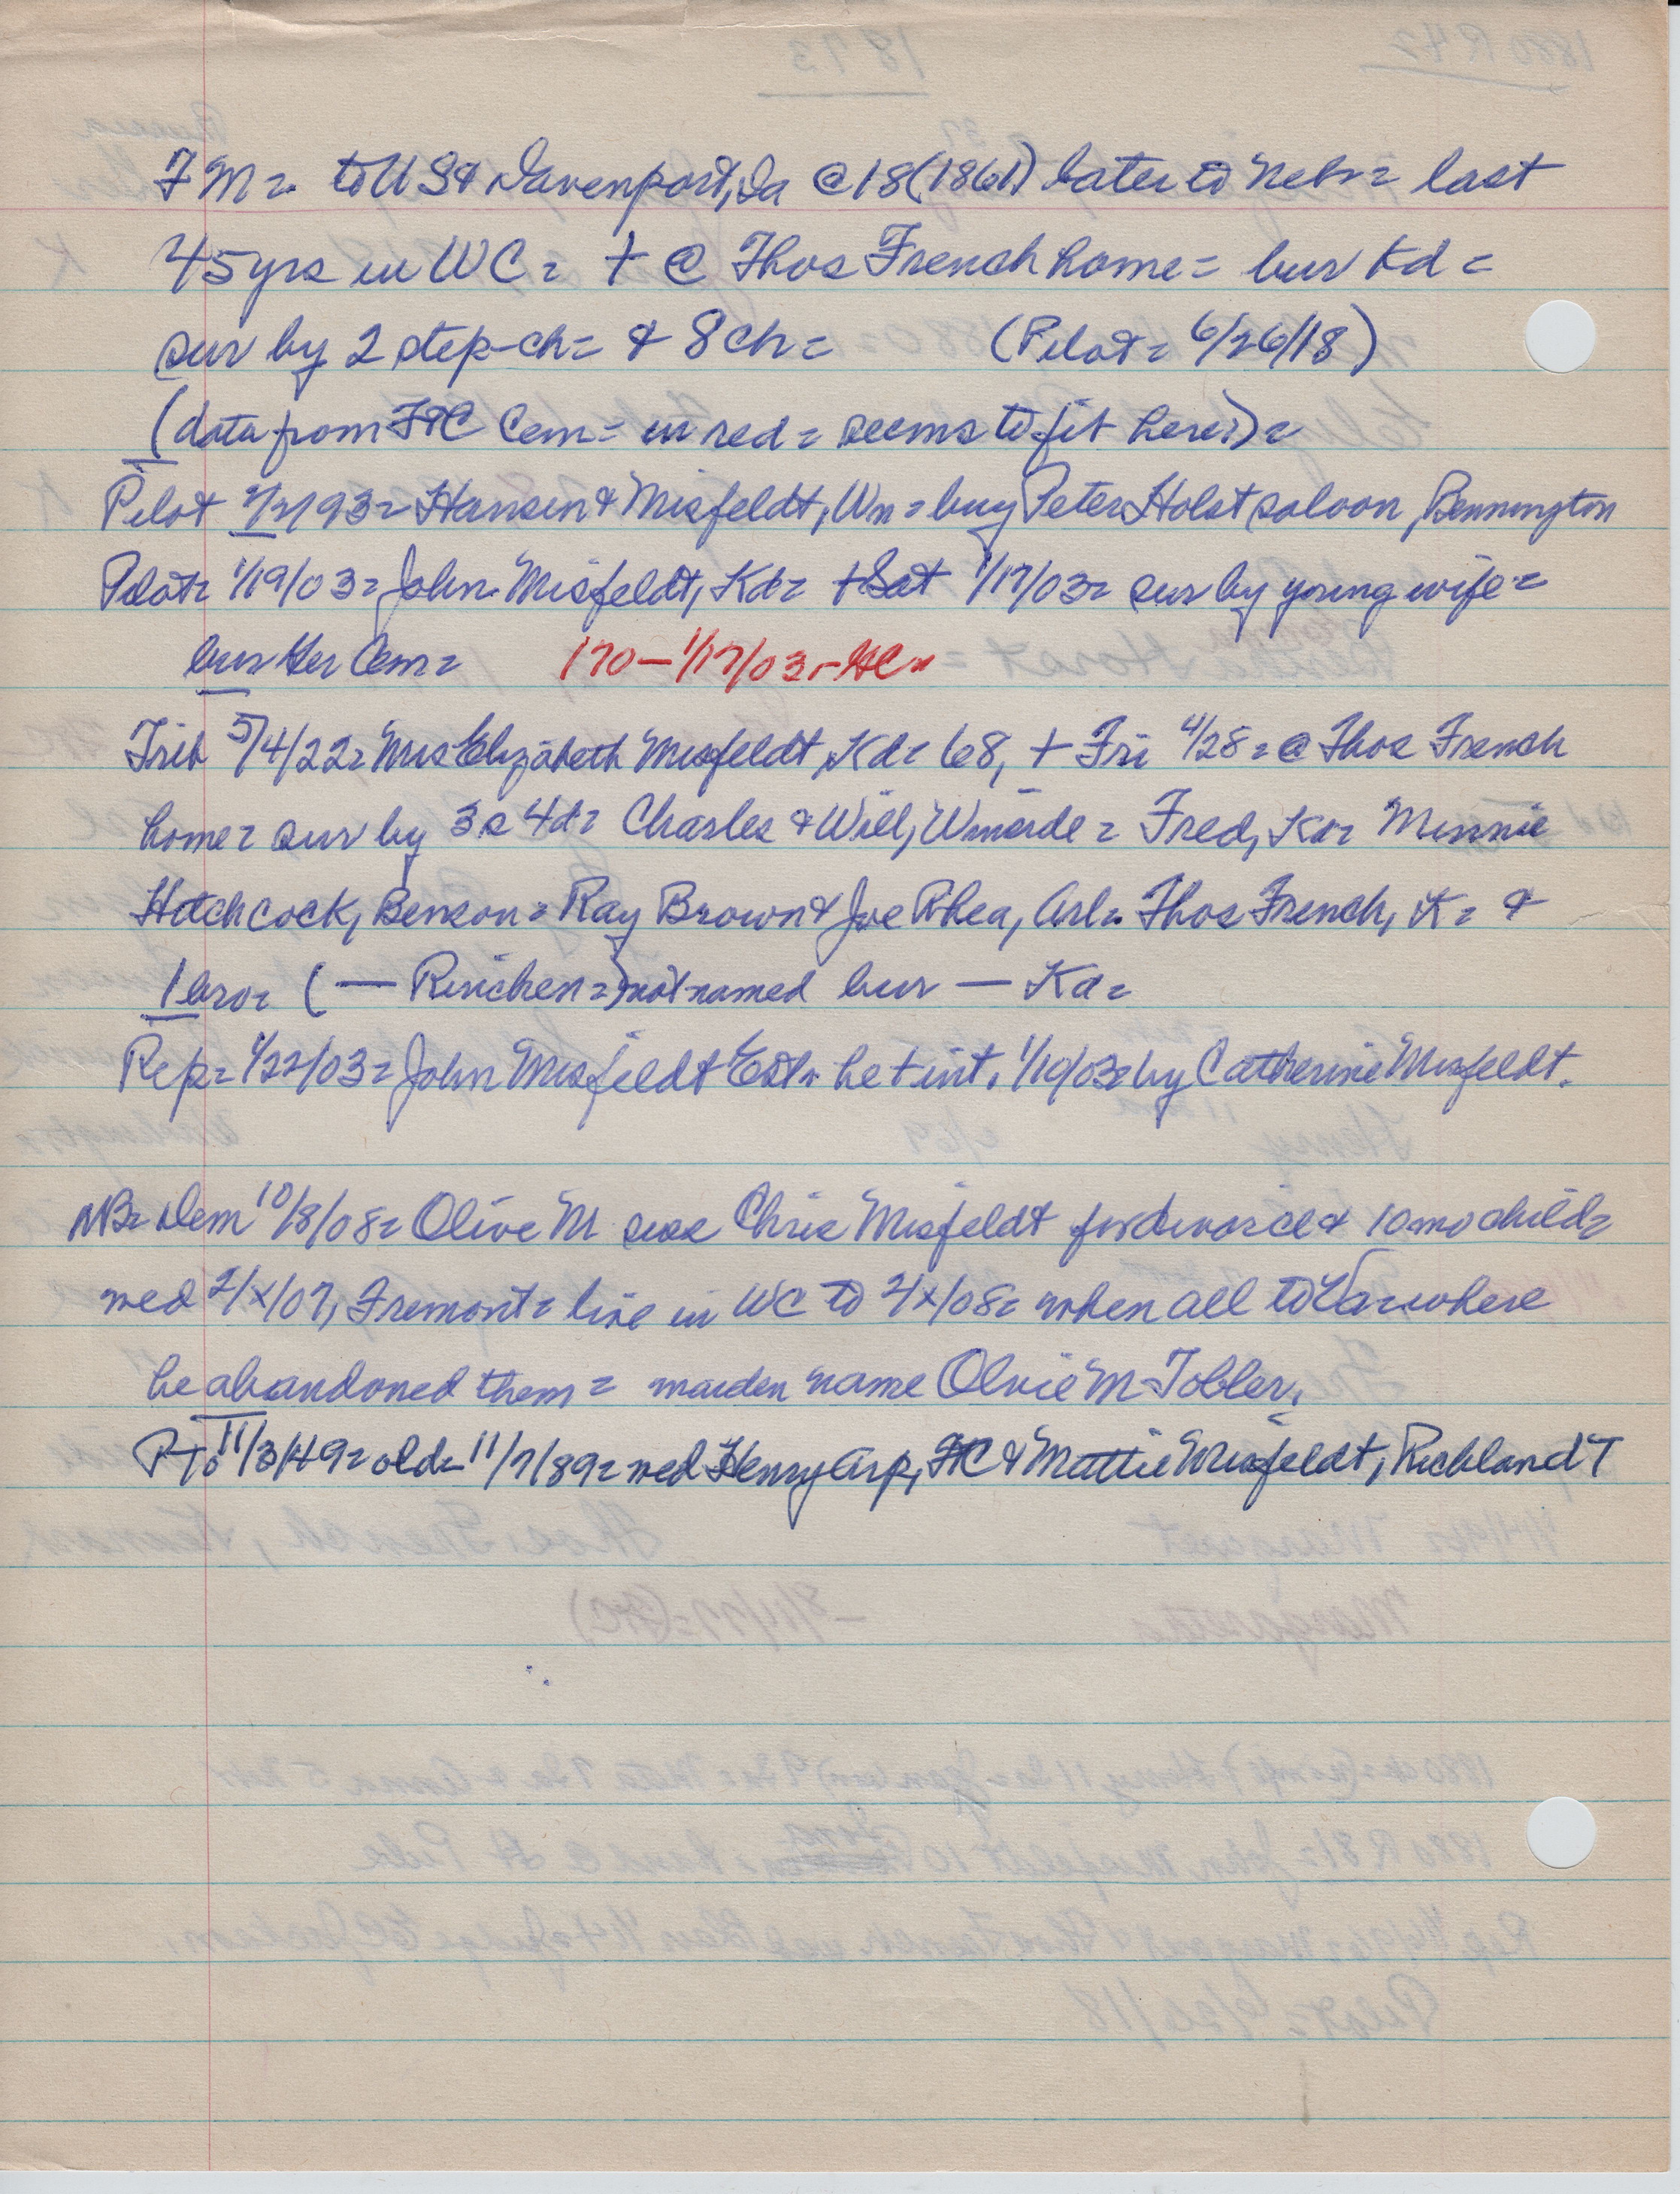 FM = to US & Davenport, Ia @ 18 (1861) later to Nebr = last
45 yrs in WC = + @ Thos French home = bur Kd =
sur by 2 step-ch = & 8 ch = (Pilot = 6/26/18)
(data from Cem = in red = seems to fit here) =
Pilot 93 = Hansen & Misfeldt, Wm = buy Peter Holst saloon, Bennington
Pilot = 1/19/03 = John Misfeldt, Kd = + Sat 1/17/03 = sur by young wife =
bur Ger Cem = 170 — 1/17/03 -
Trib 5/4/22 = Mrs Elizabeth Misfeldt, Kd = 68, + Fri 4/28 = @ Thos French
home = sur by 3s 4d = Charles & Will, = Fred, Kd = Minnie
Hitchcock, Benson = Ray Brown & Joe Rhea, Arl = Thos French, K = &
1 bro = ( — ) not named bur — Kd =
Rep = 1/22/03 = John Misfeldt Est = he + int. by Catherine Misfeldt.
NB = Dem 10/8/08 = Olive M sues Chris Misfeldt for divorce & 10 mo child =
wed 2/x/07, Fremont = live in WC to 2/x/08 = when all to where
he abandoned them = maiden name Olive M Tobler.
11/3/49 = old = 11/7/89 = wed Henry Arp, & Mattie Misfeldt, Richland T